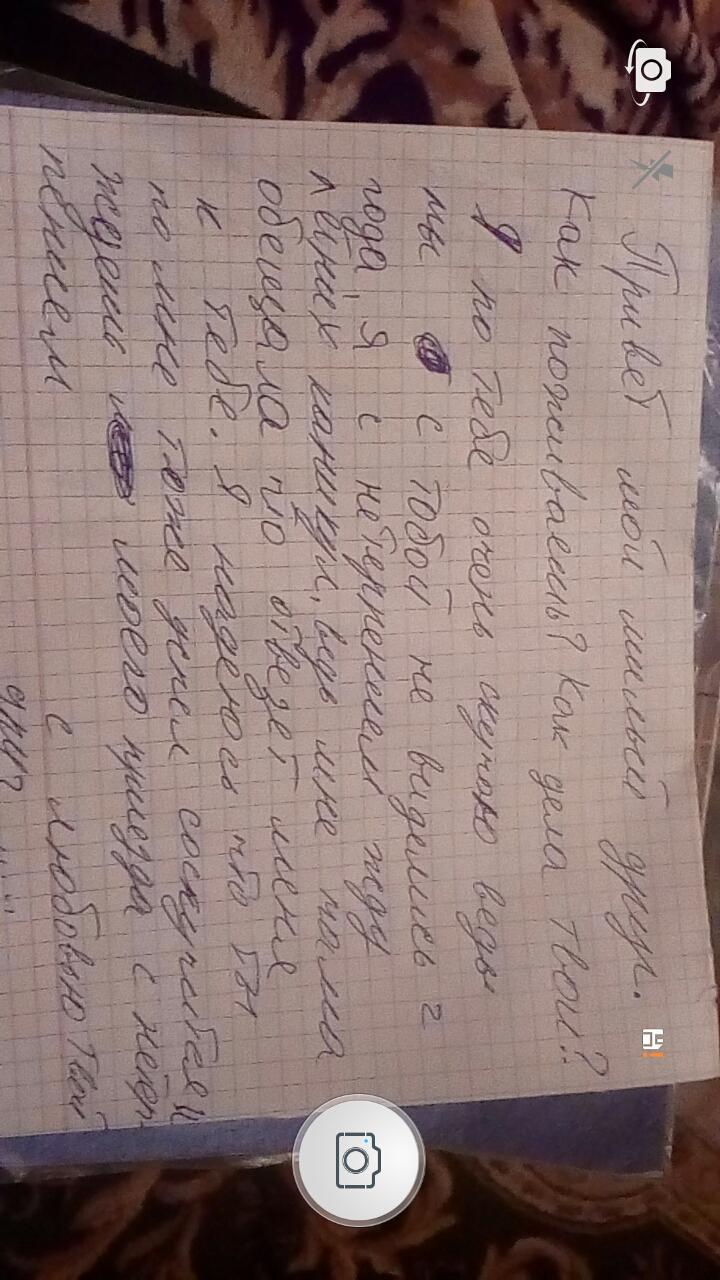 Привет мой милый друг.
Как поживаешь? Как дела твои?
Я по тебе очень скучаю ведь
мы с тобой не виделись 2
года Я с нетерпением жду
летних каникул, ведь мне мама
обещала что отвезет меня
к тебе. Я надеюсь что ты
по мне тоже успел соскучится и
ждешь моего приезда с нетер
пением
с любовью Твой
друг